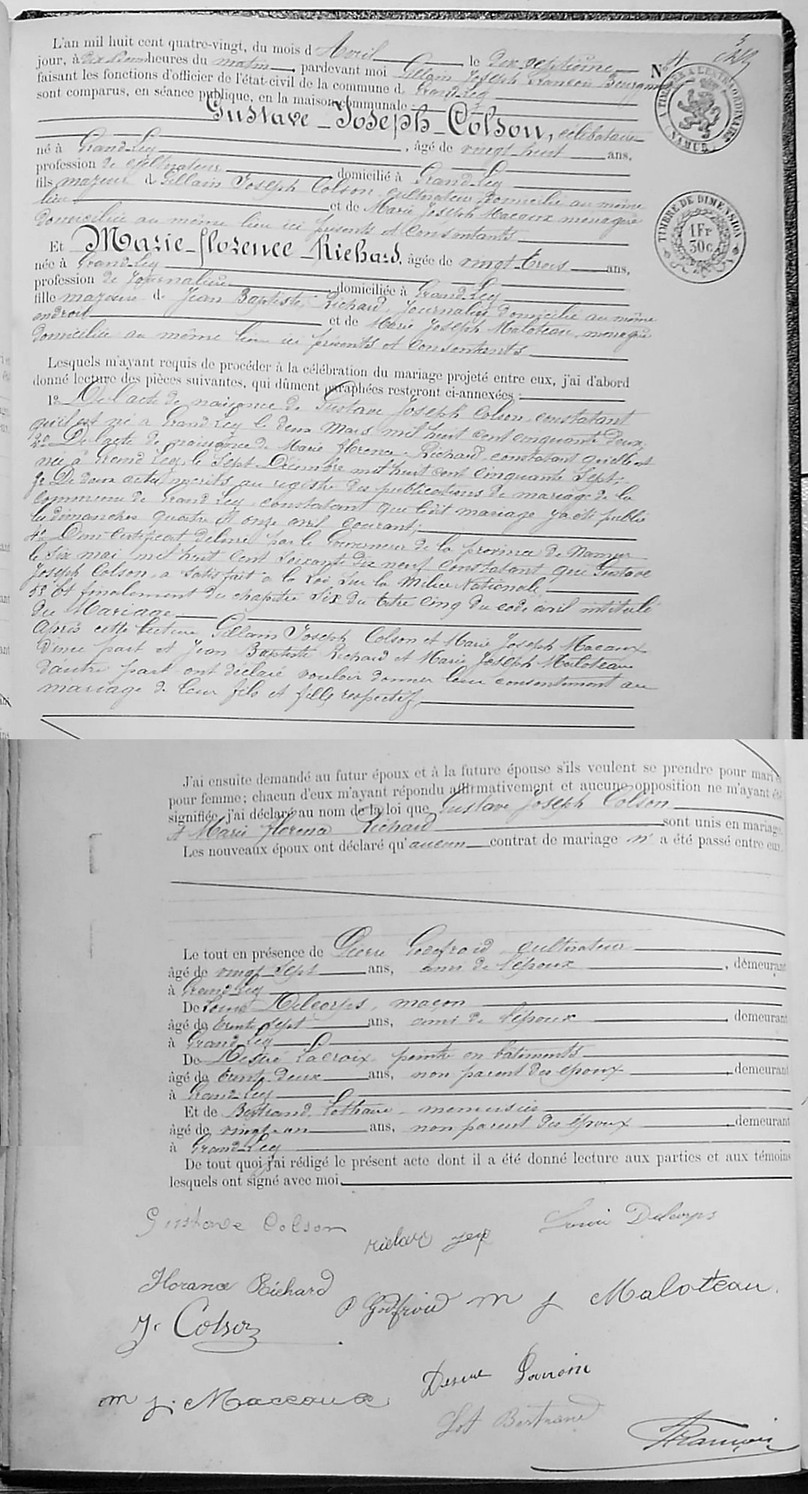 L'an mil huit cent quatre-vingt, du mois d'Avril le dix septième
jour, à dix heures du matin, pardevant moi Gillain Joseph François
faisant les fonctions d'officier de l'état-civil de la commune de Grand-Leez
sont comparus, en séance publique, en la maison communale :
N° 4
A TIMBRER A L'EXTRAORDINAIRE NAMUR
Gustave-Joseph-Colson, célibataire
né à Grand-Leez, âgé de vingt huit ans,
profession de cultivateur domicilié à Grand-Leez
fils majeur de Gillain Joseph Colson, cultivateur domicilié au même
lieu et de Marie Joseph Macaux ménagère
domiciliée au même lieu ici présents et consentants
TIMBRE DE DIMENSION 1 Fr 30c
Et Marie-florence-Richard, âgée de vingt-trois ans,
née à Grand-Leez
profession de journalière domiciliée à Grand-Leez
fille majeure de Jean Baptiste Richard, journalier domicilié au même
endroit et de Marie Joseph Maloteau, ménagère
domiciliée au même lieu ici présents et consentants
Lesquels m'ayant requis de procéder à la célébration du mariage projeté entre eux, j'ai d'abord
donné lecture des pièces suivantes, qui dûment paraphées resteront ci-annexées :
1° De l'acte de naissance de Gustave Joseph Colson, constatant
qu'il est né à Grand Leez le deux Mars mil huit cent cinquante deux
2° De l'acte de naissance de Marie florence Richard, constatant qu'elle est
née à Grand Leez, le Sept Décembre mil huit cent cinquante Sept;
3° De deux actes inscrits au registre des publications de mariage de la
commune de Grand Leez, constatant que ledit mariage y a été publié
les dimanches quatre et onze avril courant;
4° D'un Certificat délivré par le Gouverneur de la province de Namur
le Six mai mil huit Cent Soixante dix neuf Constatant que Gustave
Joseph Colson, a Satisfait à la Loi Sur la Milice Nationale
5° Et finalement du chapitre Six du titre cinq du code civil intitulé
du Mariage
Après cette lecture Gillain Joseph Colson et Marie Joseph Macaux
d'une part et Jean Baptiste Richard et Marie Joseph Maloteau
d'autre part ont déclaré vouloir donner leur consentement au
mariage de leur fils et fille respectifs
J'ai ensuite demandé au futur époux et à la future épouse s'ils veulent se prendre pour mari et
pour femme ; chacun d'eux m'ayant répondu affirmativement et aucune opposition ne m'ayant été
signifiée, j'ai déclaré au nom de la loi que Gustave Joseph Colson
et Marie florence Richard sont unis en mariage
Les nouveaux époux ont déclaré qu'aucun contrat de mariage n'a été passé entre eux
Le tout en présence de Pierre Godfroid, cultivateur
âgé de vingt sept ans, ami de l'époux, demeurant
à Grand-Leez
De Louis Delcorps, maçon
âgé de trente sept ans, ami de l'époux demeurant
à Grand Leez
De Désiré Lacroix, peintre en bâtiments
âgé de trente-deux ans, non parent des époux demeurant
à Grand Leez
Et de Bertrand, Lothaire, menuisier
âgé de vingt-un ans, non parent des époux demeurant
à Grand Leez
De tout quoi j'ai rédigé le présent acte dont il a été donné lecture aux parties et aux témoins
lesquels ont signé avec moi.
Gustave Colson
Louis Delcorps
Florence Richard
P Godfroid
m j Maloteau
J. Colson
m j. Macaux
Désiré Lacroix
Lot Bertrand